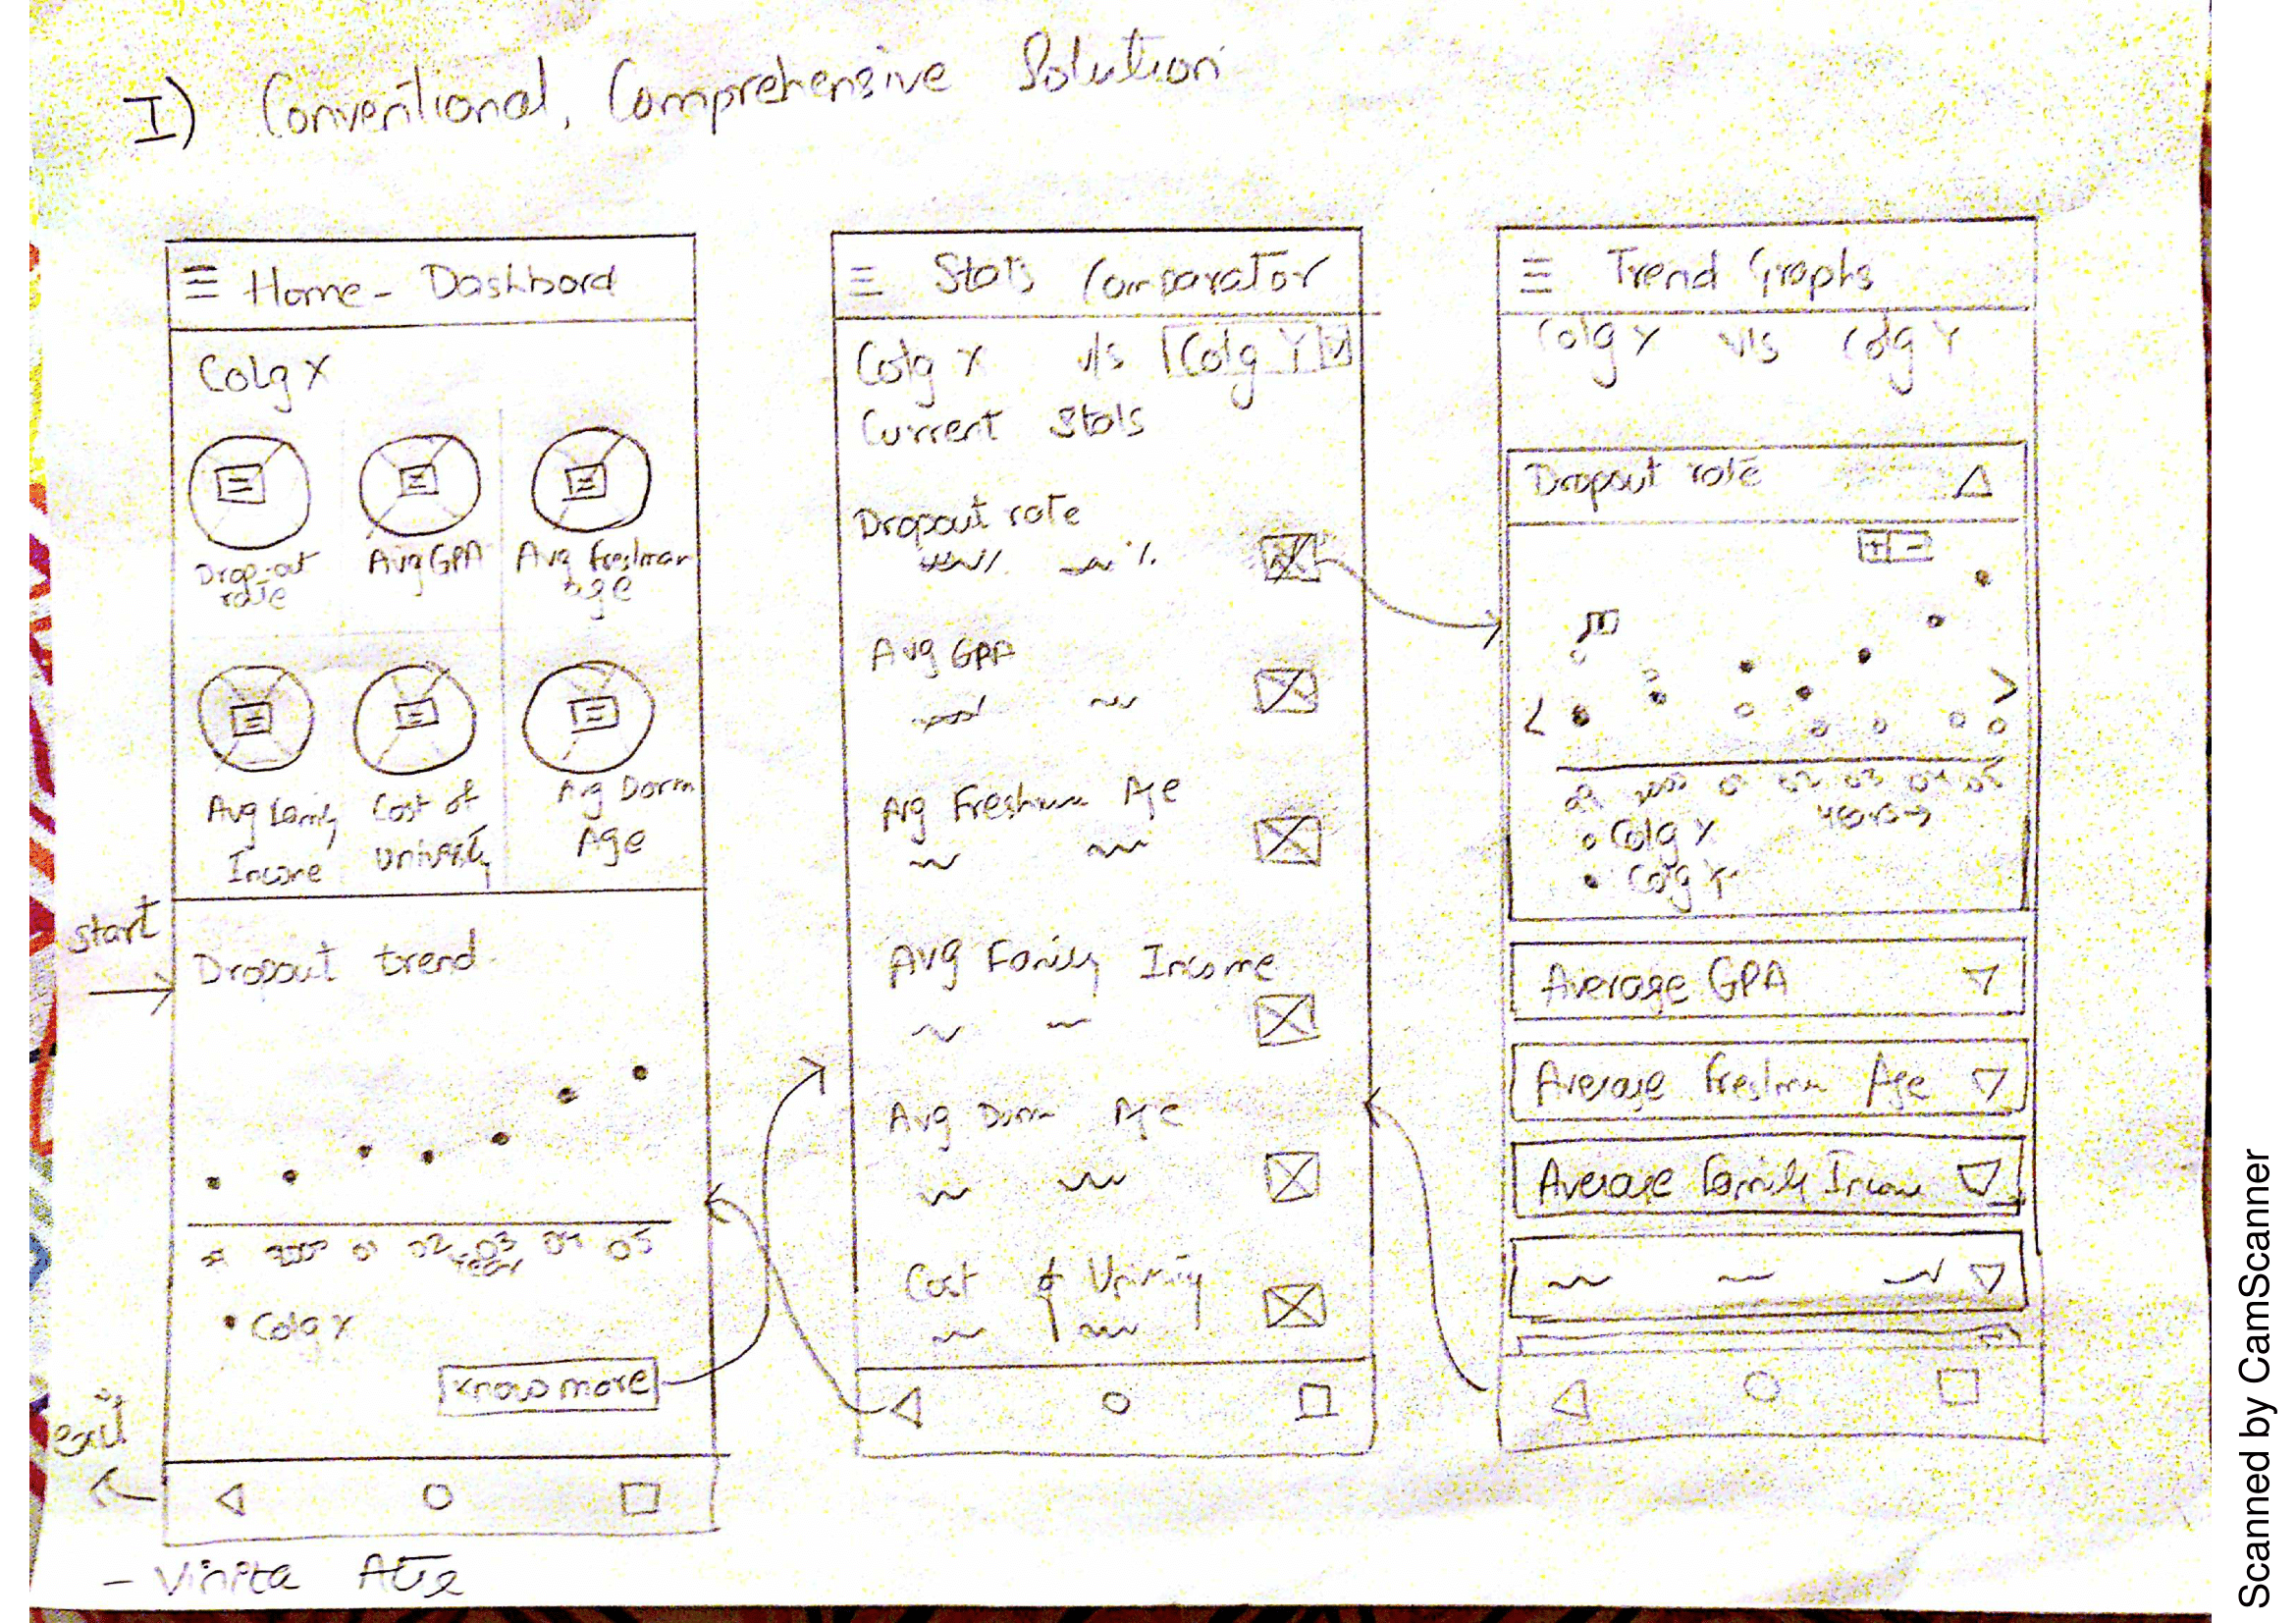 I) Conventional, Comprehensive Solution
Home - Dashbord
Colg X
Drop-out rate
Avg GPA
Avg Freshman Age
Avg Family Income
Cost of University
Avg Dorm Age
start
Dropout trend
2000 01 02 03 04 05
Year
Colg X
know more
exit
- Vinita Atre
Stats Comparator
Colg X v/s Colg Y
Current Stats
Dropout rate
% %
Avg GPA
Avg Freshman Age
Avg Family Income
Avg Dorm Age
Cost of University
Trend Graphs
Colg X v/s Colg Y
Dropout rate
+ -
2000 01 02 03 04 05
years →
Colg X
Colg Y
Average GPA
Average Freshman Age
Average Family Income
Scanned by CamScanner